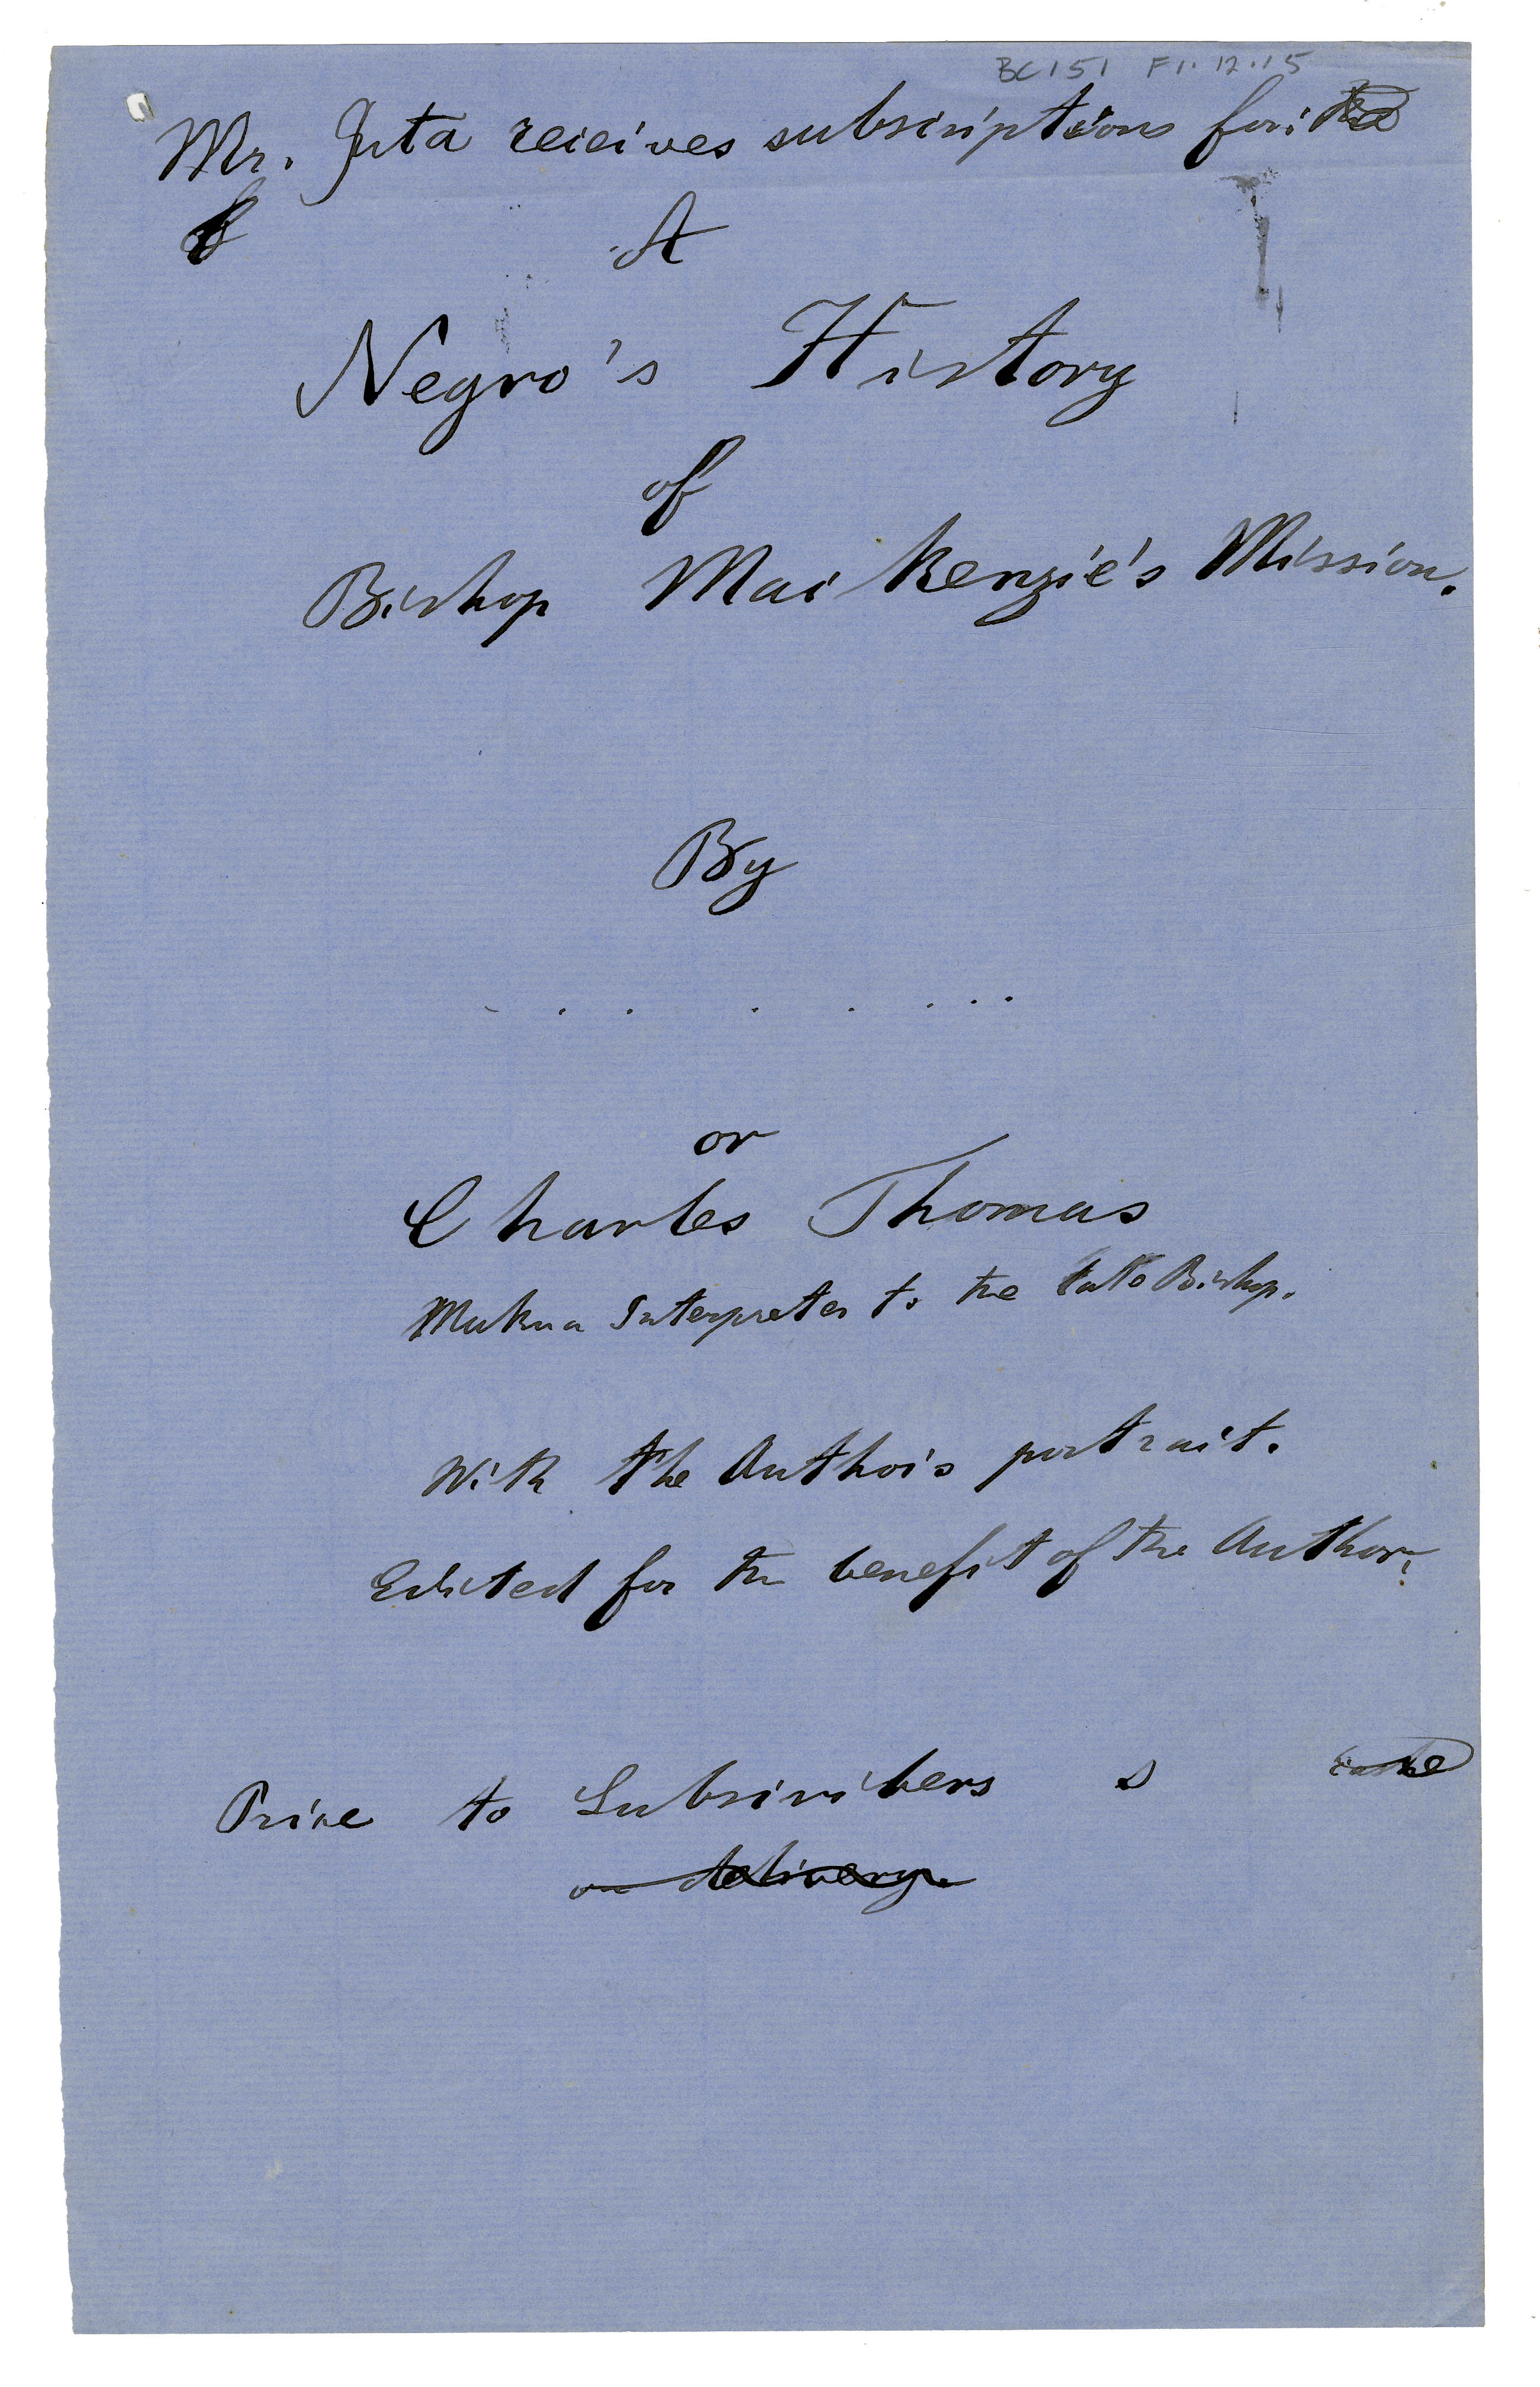 BC151 F1.12.15
Mr. Juta receives subscriptions for: the
A
Negro's History
of
Bishop MacKenzie's Mission.
By
. . . . . . . .
or
Charles Thomas
Makua Interpreter to the late Bishop.
With the Author's portrait.
Edited for the benefit of the Author.
Price to Subscribers s
on delivery.